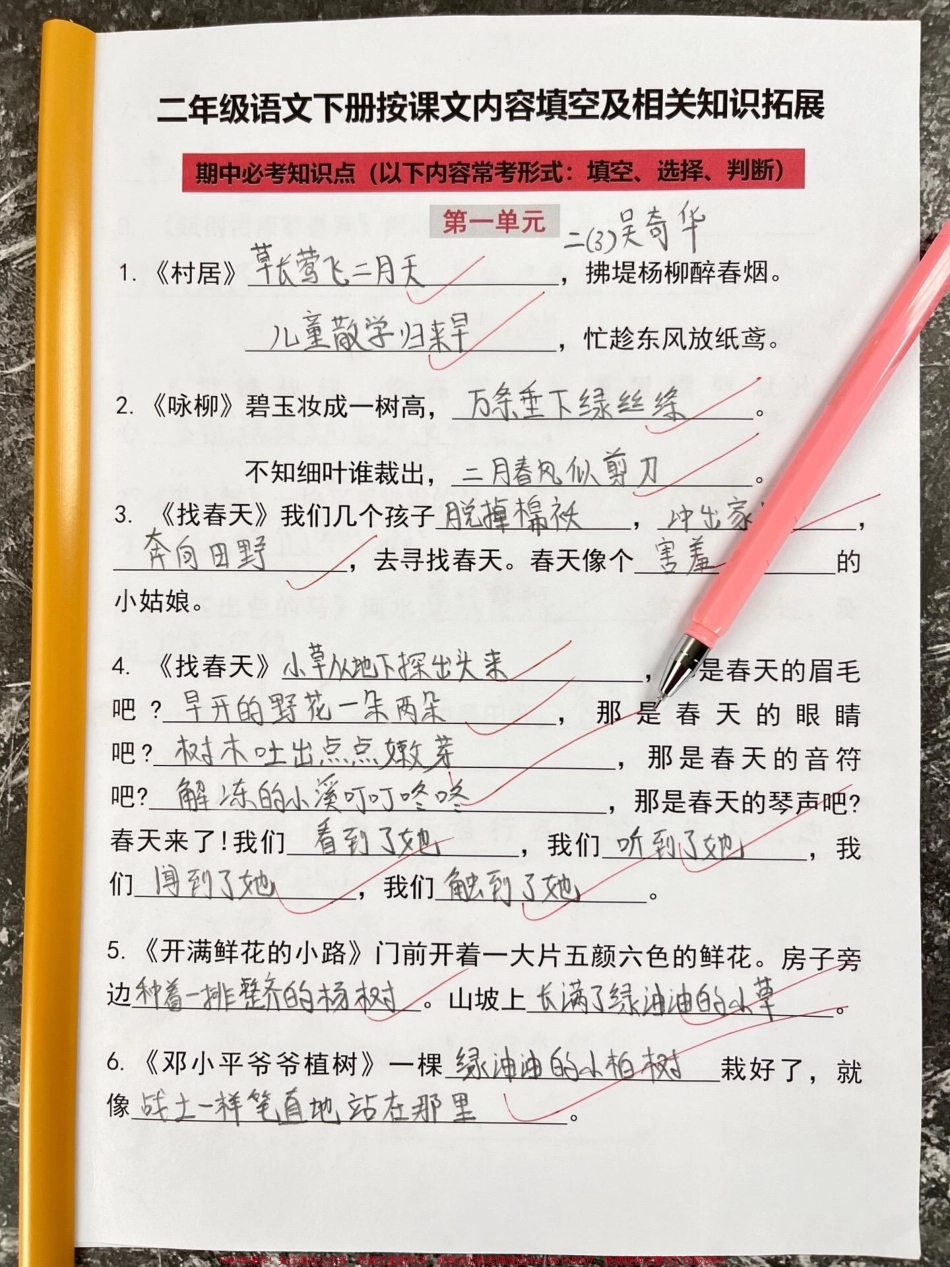 二年级语文下册按课文内容填空及相关知识拓展
期中必考知识点（以下内容常考形式：填空、选择、判断）
第一单元 二(3)吴奇华
1.《村居》草长莺飞二月天，拂堤杨柳醉春烟。
儿童散学归来早，忙趁东风放纸鸢。
2.《咏柳》碧玉妆成一树高，万条垂下绿丝绦。
不知细叶谁裁出，二月春风似剪刀。
3. 《找春天》我们几个孩子脱掉棉袄，冲出家，
奔向田野，去寻找春天。春天像个害羞的
小姑娘。
4. 《找春天》小草从地下探出头来，是春天的眉毛
吧?早开的野花一朵两朵，那是春天的眼睛
吧?树木吐出点点嫩芽，那是春天的音符
吧?解冻的小溪叮叮咚咚，那是春天的琴声吧?
春天来了!我们看到了她，我们听到了她，我
们闻到了她，我们触到了她。
5.《开满鲜花的小路》门前开着一大片五颜六色的鲜花。房子旁
边种着一排整齐的杨树。山坡上长满了绿油油的小草。
6.《邓小平爷爷植树》一棵绿油油的小柏树栽好了，就
像战士一样笔直地站在那里。